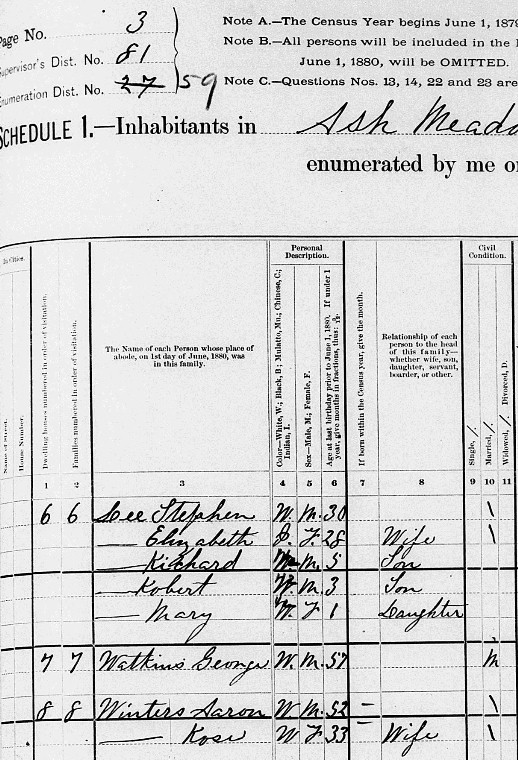 Page No. 3
Supervisor's Dist. No. 81
Enumeration Dist. No. 27 59
Note A.—The Census Year begins June 1, 1879
Note B.—All persons will be included in the
June 1, 1880, will be OMITTED.
Note C.—Questions Nos. 13, 14, 22 and 23 are
SCHEDULE 1.—Inhabitants in Ash Meado
enumerated by me o
In Cities.
Name of Street.
House Number.
Dwelling houses numbered in order of visitation.
Families numbered in order of visitation.
The Name of each Person whose place of abode, on 1st day of June, 1880, was in this family.
Personal Description.
Color—White, W.; Black, B.; Mulatto, Mu.; Chinese, C.; Indian, I.
Sex—Male, M.; Female, F.
Age at last birthday prior to June 1, 1880. If under 1 year, give months in fractions, thus: 3/12.
If born within the Census year, give the month.
Relationship of each person to the head of this family—whether wife, son, daughter, servant, boarder, or other.
Civil Condition.
Single, /.
Married, /.
Widowed, /. Divorced, D.
1 2 3 4 5 6 7 8 9 10 11
6 6 Lee Stephen W. M. 30 \
— Elizabeth I. F. 28 Wife \
— Richard M. 5 Son
— Robert M. 3 Son
— Mary F 1 Daughter
7 7 Watkins George W. M. 57 M
8 8 Winters Aaron W. M. 52 – \
— Rose W F 33 – Wife \